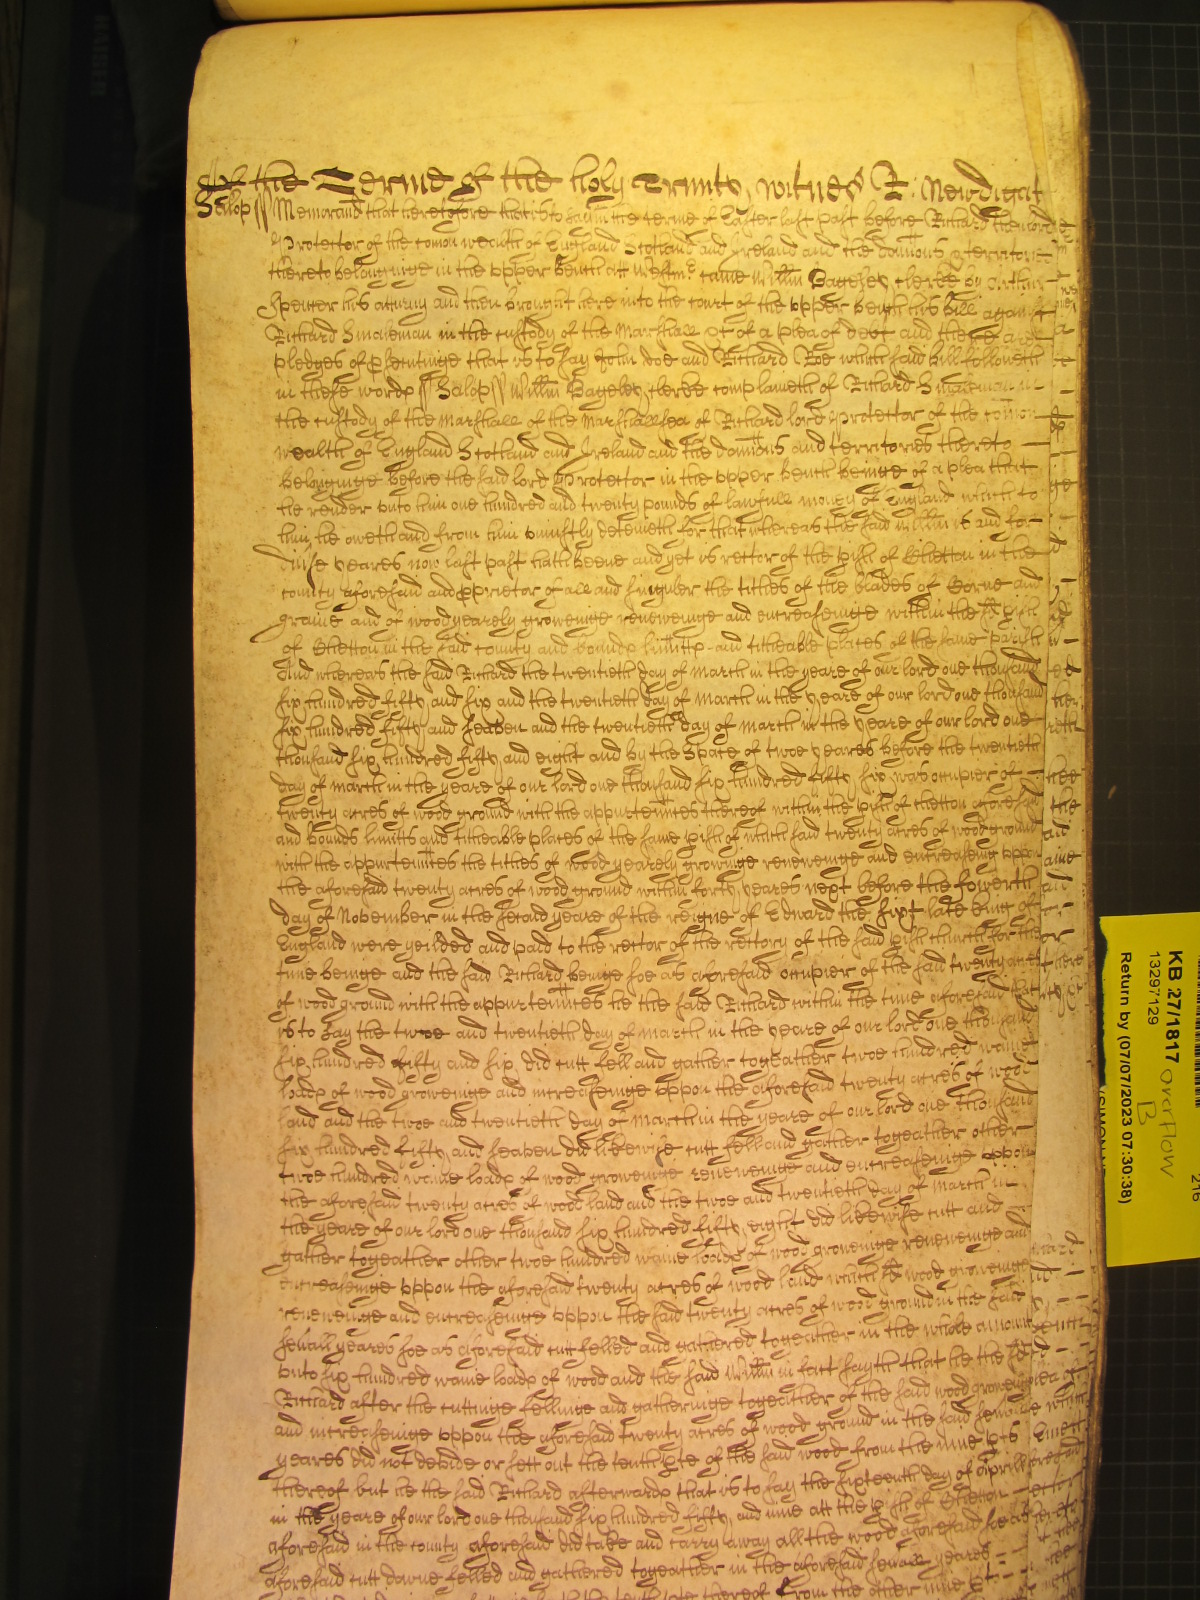 Of the Terme of the holy Trinity witnes R: Newdigat
Salop ss Memorand that heretofore that is to say in the terme of Easter last past before Richard then lord
Protector of the comon wealth of England Scotland and Ireland and the dominions & territories
thereto belonginge in the upper bench att Westmr came Willm Bageley clerke by Arthur
Spencer his atturny and then brought here into the court of the upper bench his bill against
Richard Smaleman in the custody of the Marshall &c of a plea of debt and there are
pledges of psecutinge that is to say John Doe and Richard Roe which said bill followeth
in these wordes ss Salop ss Willm Bageley clerke complaineth of Richard Smaleman in
the custody of the Marshall of the Marshallsea of Richard lord Protector of the comon
wealth of England Scotland and Ireland and the dominions and territories thereto
belonginge before the said lord Protector in the upper bench beinge of a plea that
he render unto him one hundred and twenty pounds of lawfull money of England which to
him he oweth and from him uniustly deteineth for that whereas the said Willm is and for
divse yeares now last past hath beene and yet is rector of the pish of Chetton in the
county aforesaid and pprietor of all and singuler the tithes of the blades of Corne and
graine and of wood yearely groweinge reneweinge and encreaseinge within the sd pish
of Chetton in the said county and bounds limitts and titheable places of the same parish
And whereas the said Richard the twentieth day of March in the yeare of our lord one thousand
six hundred fifty and six and the twentieth day of March in the yeare of our lord one thousand
six hundred fifty and seaven and the twentieth day of March in the yeare of our lord one
thousand six hundred fifty and eight and by the space of twoe yeares before the twentieth
day of March in the yeare of our lord one thousand six hundred fifty six was occupier of
twenty acres of wood ground with the appurtennces thereof within the pish of Chetton aforesaid
and bounds limitts and titheable places of the same pish of which said twenty acres of wood ground
with the appurtennces the tithes of wood yearely growinge reneweinge and encreaseing uppon
the aforesaid twenty acres of wood ground within forty yeares next before the fowerth
day of November in the second yeare of the reigne of Edward the sixt late King of
England were yeilded and paid to the rector of the rectory of the said pish church for the
time beinge and the said Richard beinge soe as aforesaid occupier of the said twenty acres
of wood ground with the appurtennces he the said Richard within the time aforesaid that
is to say the twoe and twentieth day of March in the yeare of our lord one thousand
six hundred fifty and six did cutt fell and gather togeather twoe hundred waine
loads of wood groweinge and increaseinge uppon the aforesaid twenty acres of wood
land and the twoe and twentieth day of March in the yeare of our lord one thousand
six hundred fifty and seaven did likewise cutt fell and gather togeather other
twoe hundred waine loads of wood groweinge reneweinge and encreaseinge uppon
the aforesaid twenty acres of wood land and the twoe and twentieth day of March in
the yeare of our lord one thousand six hundred fifty eight did likewise cutt and
gather togeather other twoe hundred waine loads of wood groweinge reneweinge and
encreaseinge uppon the aforesaid twenty acres of wood land which sd wood groweinge
reneweinge and encreaseinge uppon the said twenty acres of wood ground in the said
sevall yeares soe as aforesaid cutt felled and gathered togeather in the whole amount
unto six hundred waine loads of wood and the said Willm in fact sayth that he the sd
Richard after the cuttinge fellinge and gatheringe togeather of the said wood groweinge
and increaseinge uppon the aforesaid twenty acres of wood ground in the said sevall
yeares did not devide or sett out the tenth pte of the said wood from the nine pts
thereof but he the said Richard afterwards that is to say the sixteenth day of Aprill
in the yeare of our lord one thousand six hundred fifty and nine att the pish of Chetton
aforesaid in the county aforesaid did take and carry away all the wood aforesaid soe as
aforesaid cutt downe felled and gathered togeather in the aforesaid sevall yeares
thereof from the other nine
KB 27/1817
13297129
Return by (07/07/2023 07:30:38)
overflow
B
216